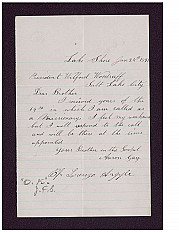 Lake Shore Jan 26th 1891
President Wilford Woodruff
Salt Lake City
Dear Brother
I received yours of the
19th in which I am called as
a Missionary I feel my weakness
but I will respond to the call
and will be there at the time
appointed
Your Brother in the Gospel
Aaron
Bp. Lorenzo Argyle
J. F. S.